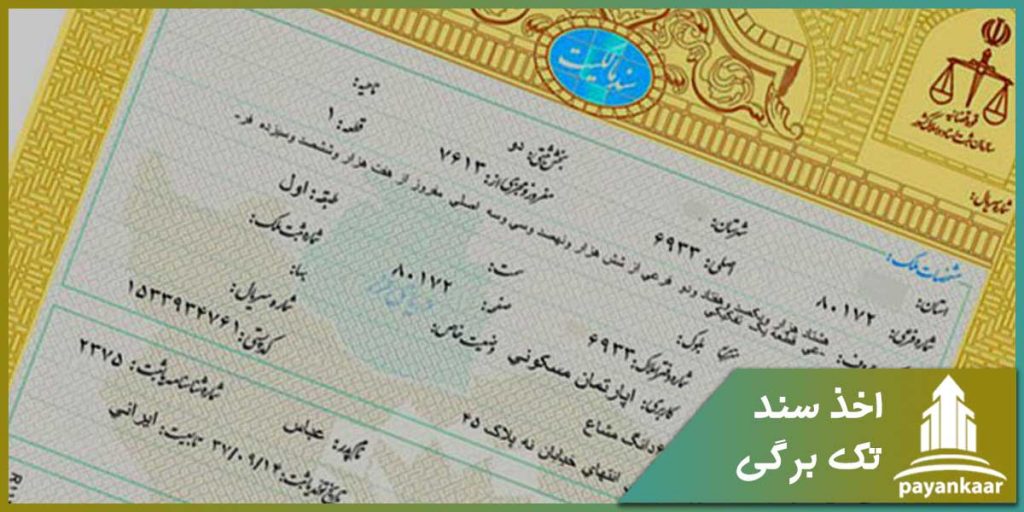 قوه قضائیه
سازمان ثبت اسناد و املاک کشور
شماره سریال:
سند مالکیت
مشخصات ملک:
استان:
شهرستان:
بخش ثبتی: دو
ناحیه:
شماره فرعی: ۸۰۱۷۲
اصلی: ۶۹۳۳
مفروز و مجزی از: ۷۶۱۳
قطعه: ۱
هشتاد هزار و یکصد و هفتاد و دو فرعی از شش هزار و نهصد و سی و سه اصلی مفروز از هفت هزار و ششصد و سیزده فر-
-عی قطعه یک تفکیکی
طبقه: اول
بلوک:
سمت:
شماره ثبت ملک:
شماره دفتر املاک: ۶۹۳۳
صفحه: ۸۰۱۷۲
بها:
کاربری: اپارتمان مسکونی
وضعیت خاص:
شماره سریال:
۶دانگ مشاع
کدپستی: ۱۵۳۳۹۳۴۷۶۱
انتهای خیابان نه پلاک ۴۵
نام پدر: عباس
شماره شناسنامه یا ثبت: ۲۳۷۵
تاریخ تولد یا ثبت: ۳۷/۰۹/۱۴
تابعیت: ایرانی
اخذ سند
تک برگی
payankaar